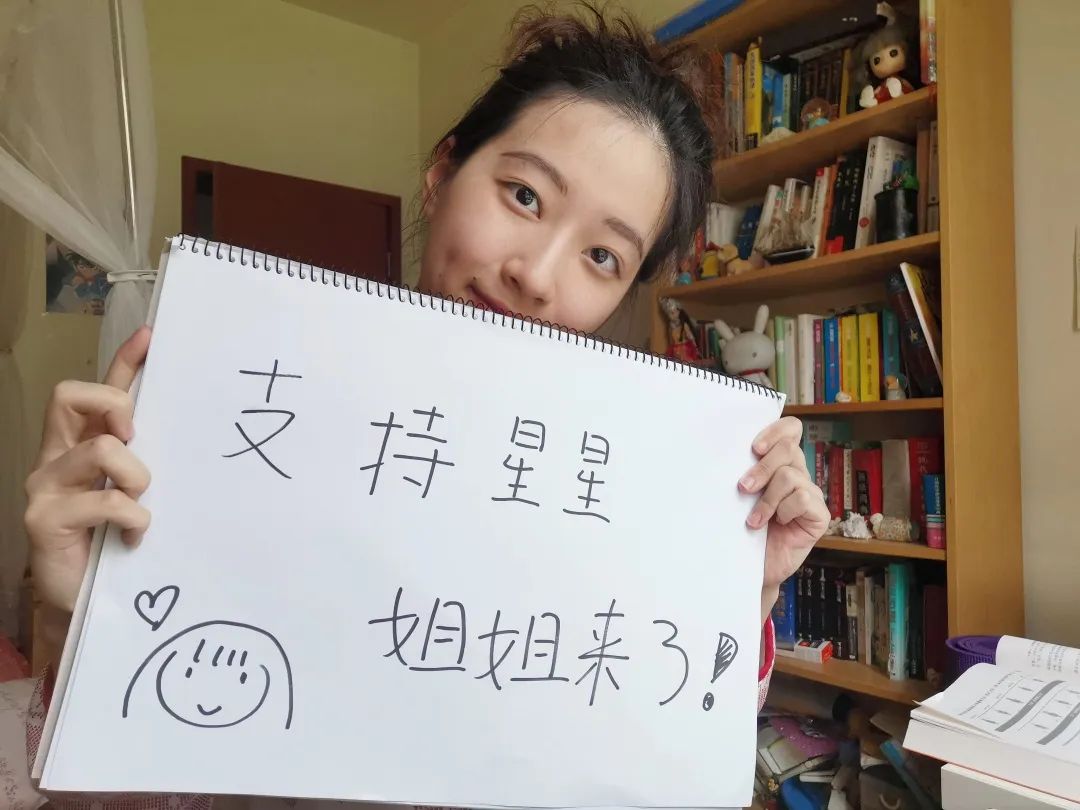 支持星星
姐姐来了!